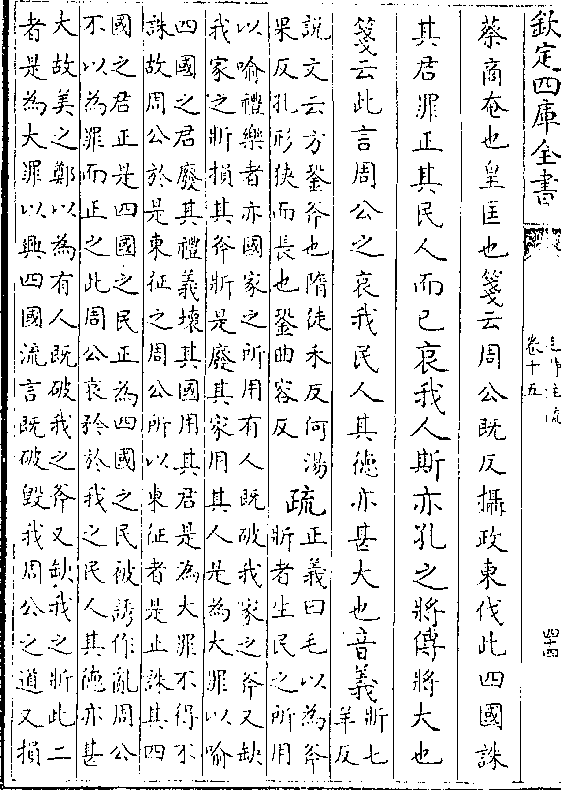 欽定四庫全書
毛詩注疏
卷十五
四十四
蔡商奄也皇匡也箋云周公既反攝政東伐此四國誅
其君罪正其民人而已哀我人斯亦孔之將傳將大也
箋云此言周公之哀我民人其德亦甚大也音義
斨七
羊反
說文云方銎斧也隋徒禾反何湯
果反孔形狹而長也銎曲容反
疏
正義曰毛以為斧
斨者生民之所用
以喻禮樂者亦國家之所用有人既破我家之斧又缺
我家之斨損其斧斨是廢其家用其人是為大罪以喻
四國之君廢其禮義壞其國用其君是為大罪不得不
誅故周公於是東征之周公所以東征者是止誅其四
國之君正是四國之民正為四國之民被誘作亂周公
不以為罪而正之此周公哀矜於我之民人其德亦甚
大故美之鄭以為有人既破我之斧又缺我之斨此二
者是為大罪以興四國流言既破毀我周公之道又損